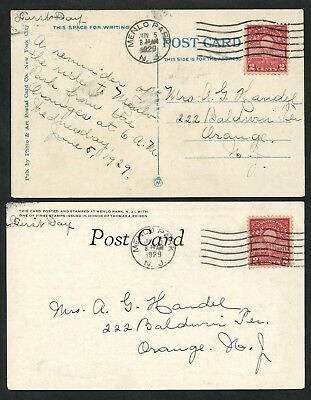 First Day
Pub. by Photo & Art Postal Card Co. New York City
THIS SPACE FOR WRITING
A reminder of
the ride to Menlo
Park from the
Oranges at 6 A.M.
Wednesday
June 5/1929.
MENLO PARK
JUN 5
8 AM
1929
N. J.
POST CARD
THIS SIDE IS FOR THE ADDRESS
2 CENTS 2
Mrs. A. G. Handel
222 Baldwin Ter.
Orange.
N. J
THIS CARD POSTED AND STAMPED AT MENLO PARK, N. J., WITH
ONE OF FIRST STAMPS ISSUED IN HONOR OF THOMAS A. EDISON
First Day
Post Card
MENLO PARK
8 AM
1929
N. J.
2 2
Mrs. A. G. Handel
222 Baldwin Ter.
Orange. N. J